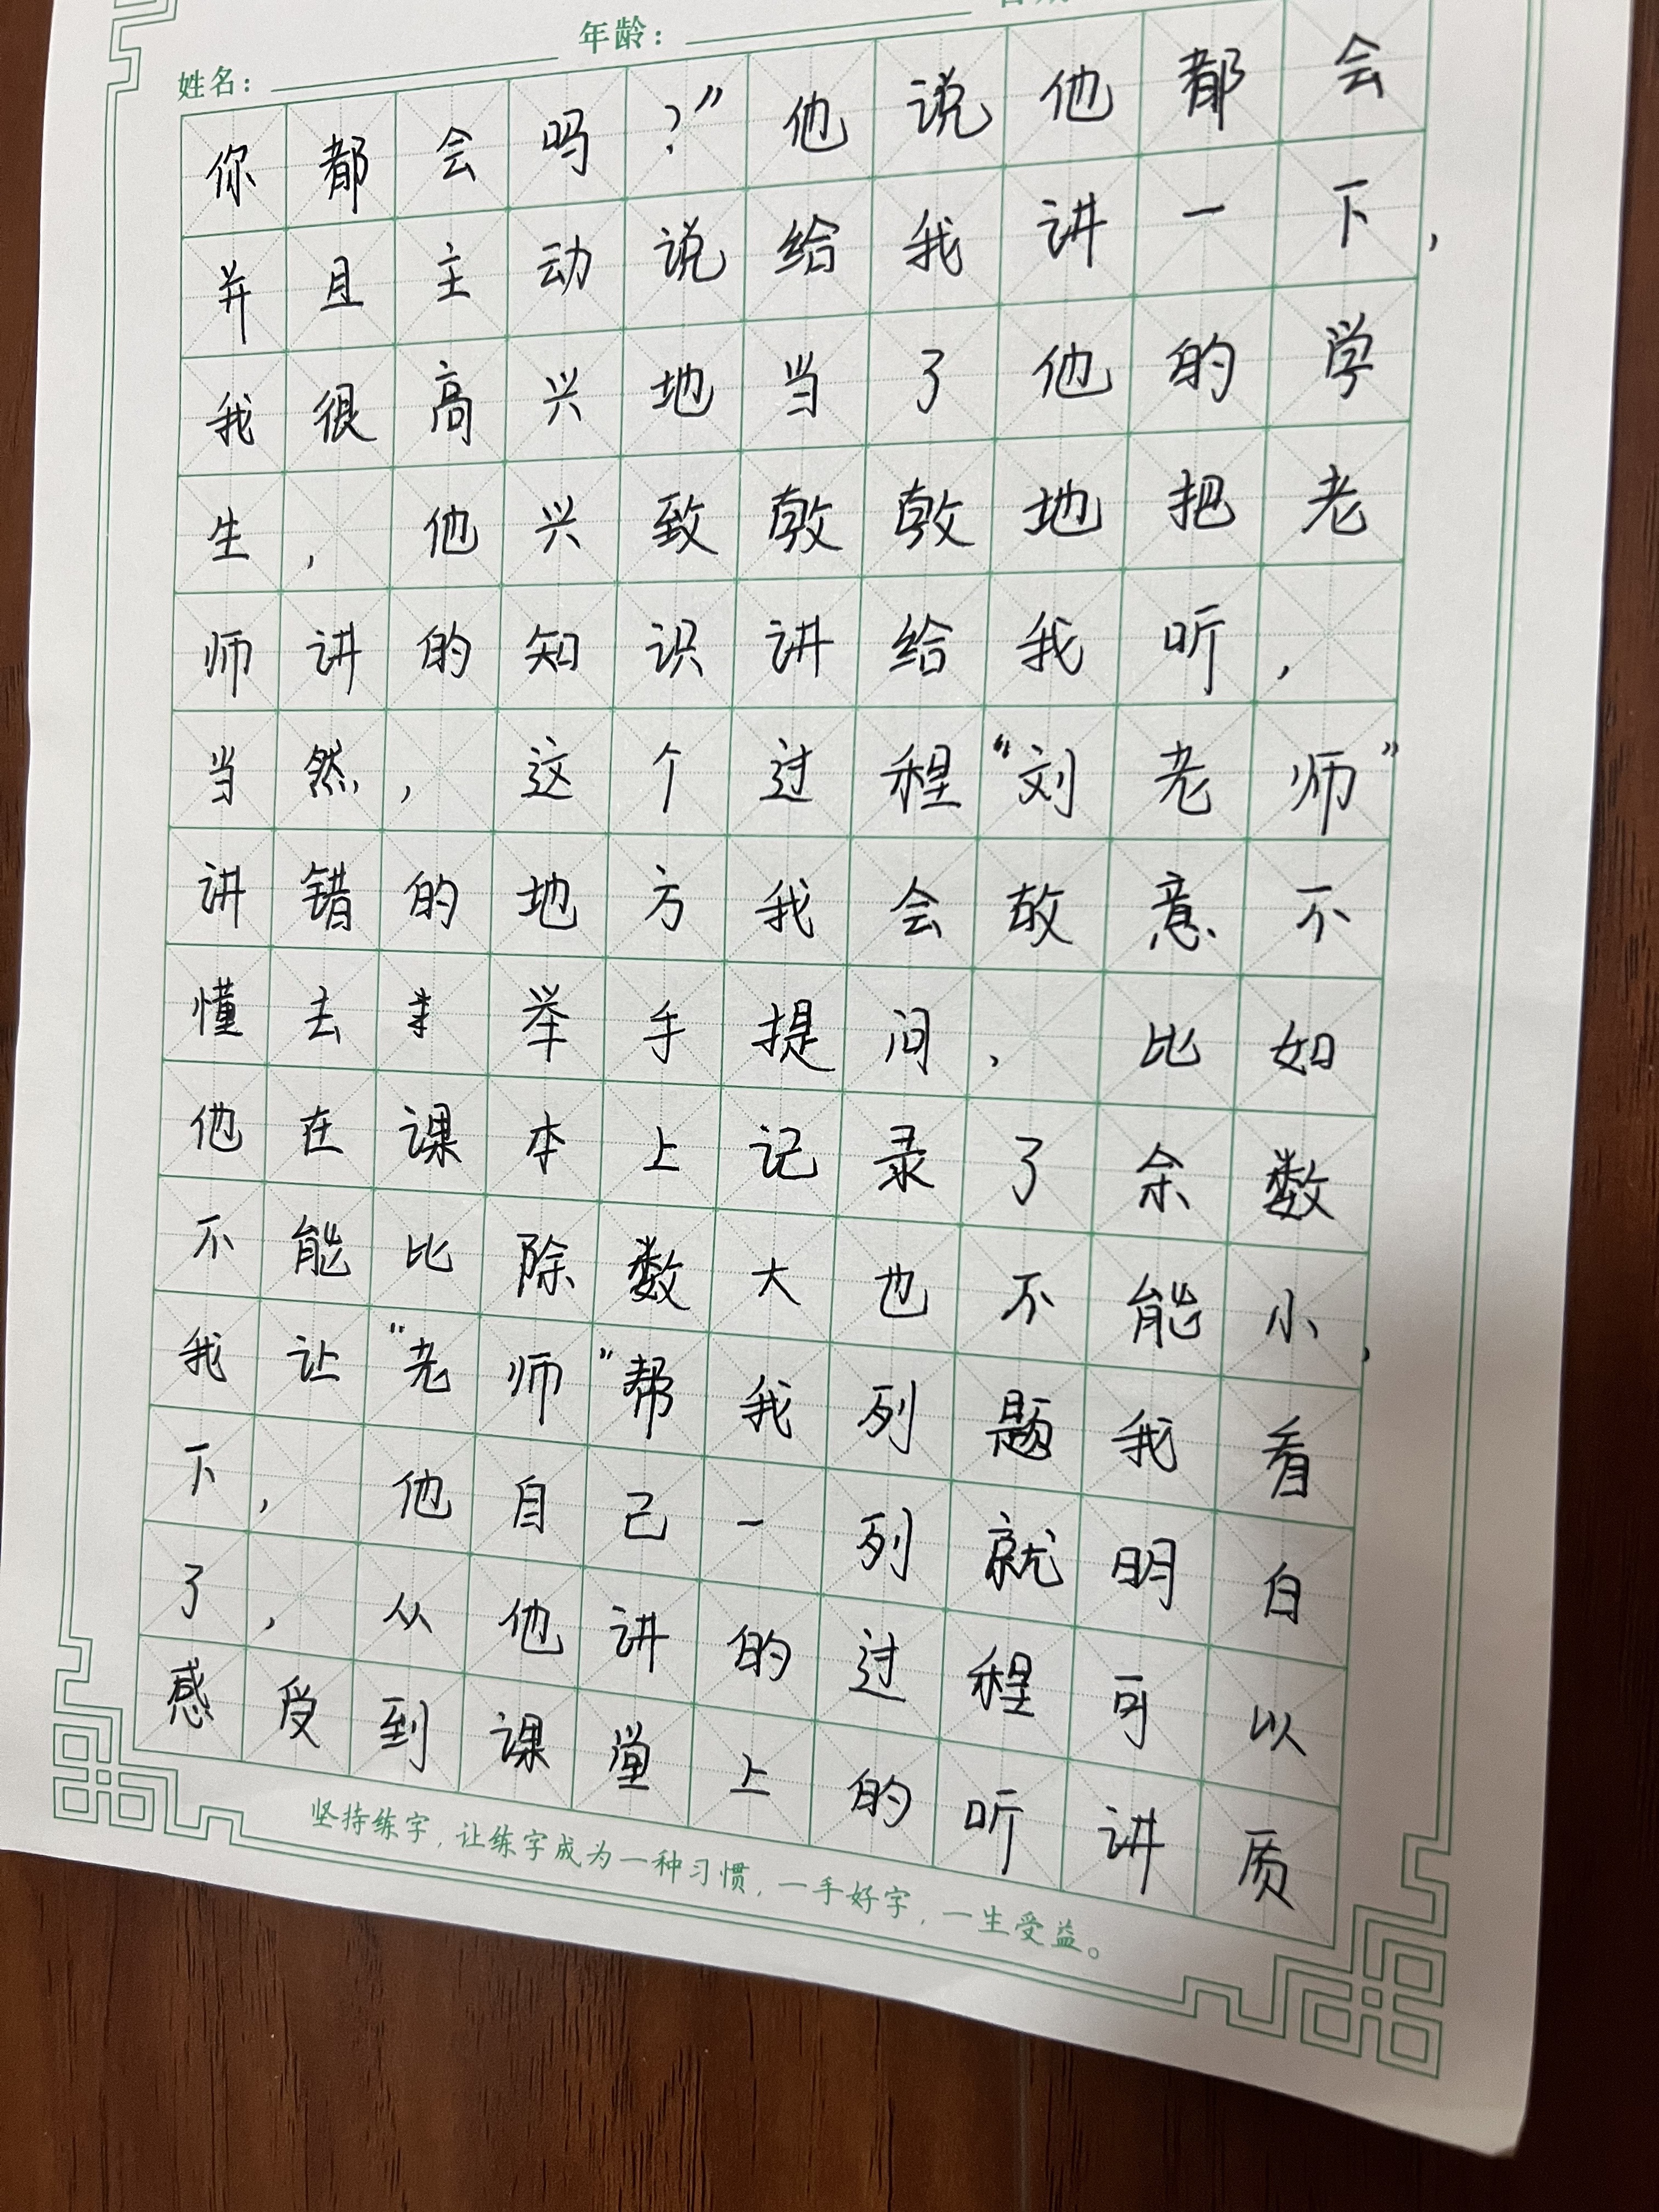 年龄：
姓名：
你都会吗？”他说他都会
并且主动说给我讲一下，
我很高兴地当了他的学
生，他兴致敦敦地把老
师讲的知识讲给我听，
当然，这个过程“刘老师”
讲错的地方我会故意不
懂去举手提问，比如
他在课本上记录了余数
不能比除数大也不能小，
我让“老师”帮我列题我看
下，他自己一列就明白
了，从他讲的过程可以
感受到课堂上的听讲质
坚持练字，让练字成为一种习惯，一手好字，一生受益。